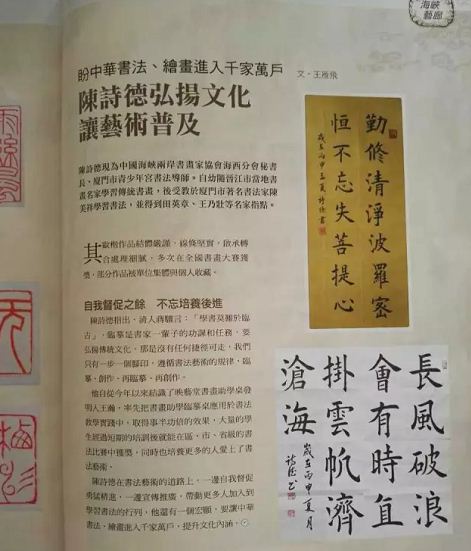 海峽
藝廊
盼中華書法、繪畫進入千家萬戶
文·王雁飛
陳詩德弘揚文化
讓藝術普及
陳詩德現為中國海峽兩岸書畫家協會海西分會秘書
長、廈門市青少年宮書法導師。自幼隨晉江市當地書
畫名家學習傳統書畫,後受教於廈門市著名書法家陳
美祥學習書法,並得到田英章、王乃壯等名家指點。
其歐楷作品結體嚴謹,線條堅實,啟承轉
合處理細膩,多次在全國書畫大賽獲
獎,部分作品被單位集體與個人收藏。
自我督促之餘 不忘培養後進
陳詩德指出,清人蔣驥言:「學書莫難於臨
古」,臨摹是書家一輩子的功課和任務,要
弘揚傳統文化,那是沒有任何捷徑可走,我們
只有一步一個腳印,遵循書法藝術的規律,臨
摹、創作、再臨摹、再創作。
他自從今年以來結識了映藝堂書畫助學桌發
明人王瀚,率先把書畫助學臨摹桌應用於書法
教學實踐中,取得事半功倍的效果,大量的學
生經過短期的培訓後就能在區、市、省級的書
法比賽中獲獎,同時也培養更多的人愛上了書
法藝術。
陳詩德在書法藝術的道路上,一邊自我督促
勇猛精進,一邊宣傳推廣,帶動更多人加入到
學習書法的行列。他還有一個宏願,要讓中華
書法、繪畫進入千家萬戶,提升文化內涵。
勤修清淨波羅蜜
恒不忘失菩提心
歲在丙申之夏 詩德書
長風破浪
會有時直
掛雲帆濟
滄海
歲在丙申夏月
詩德書